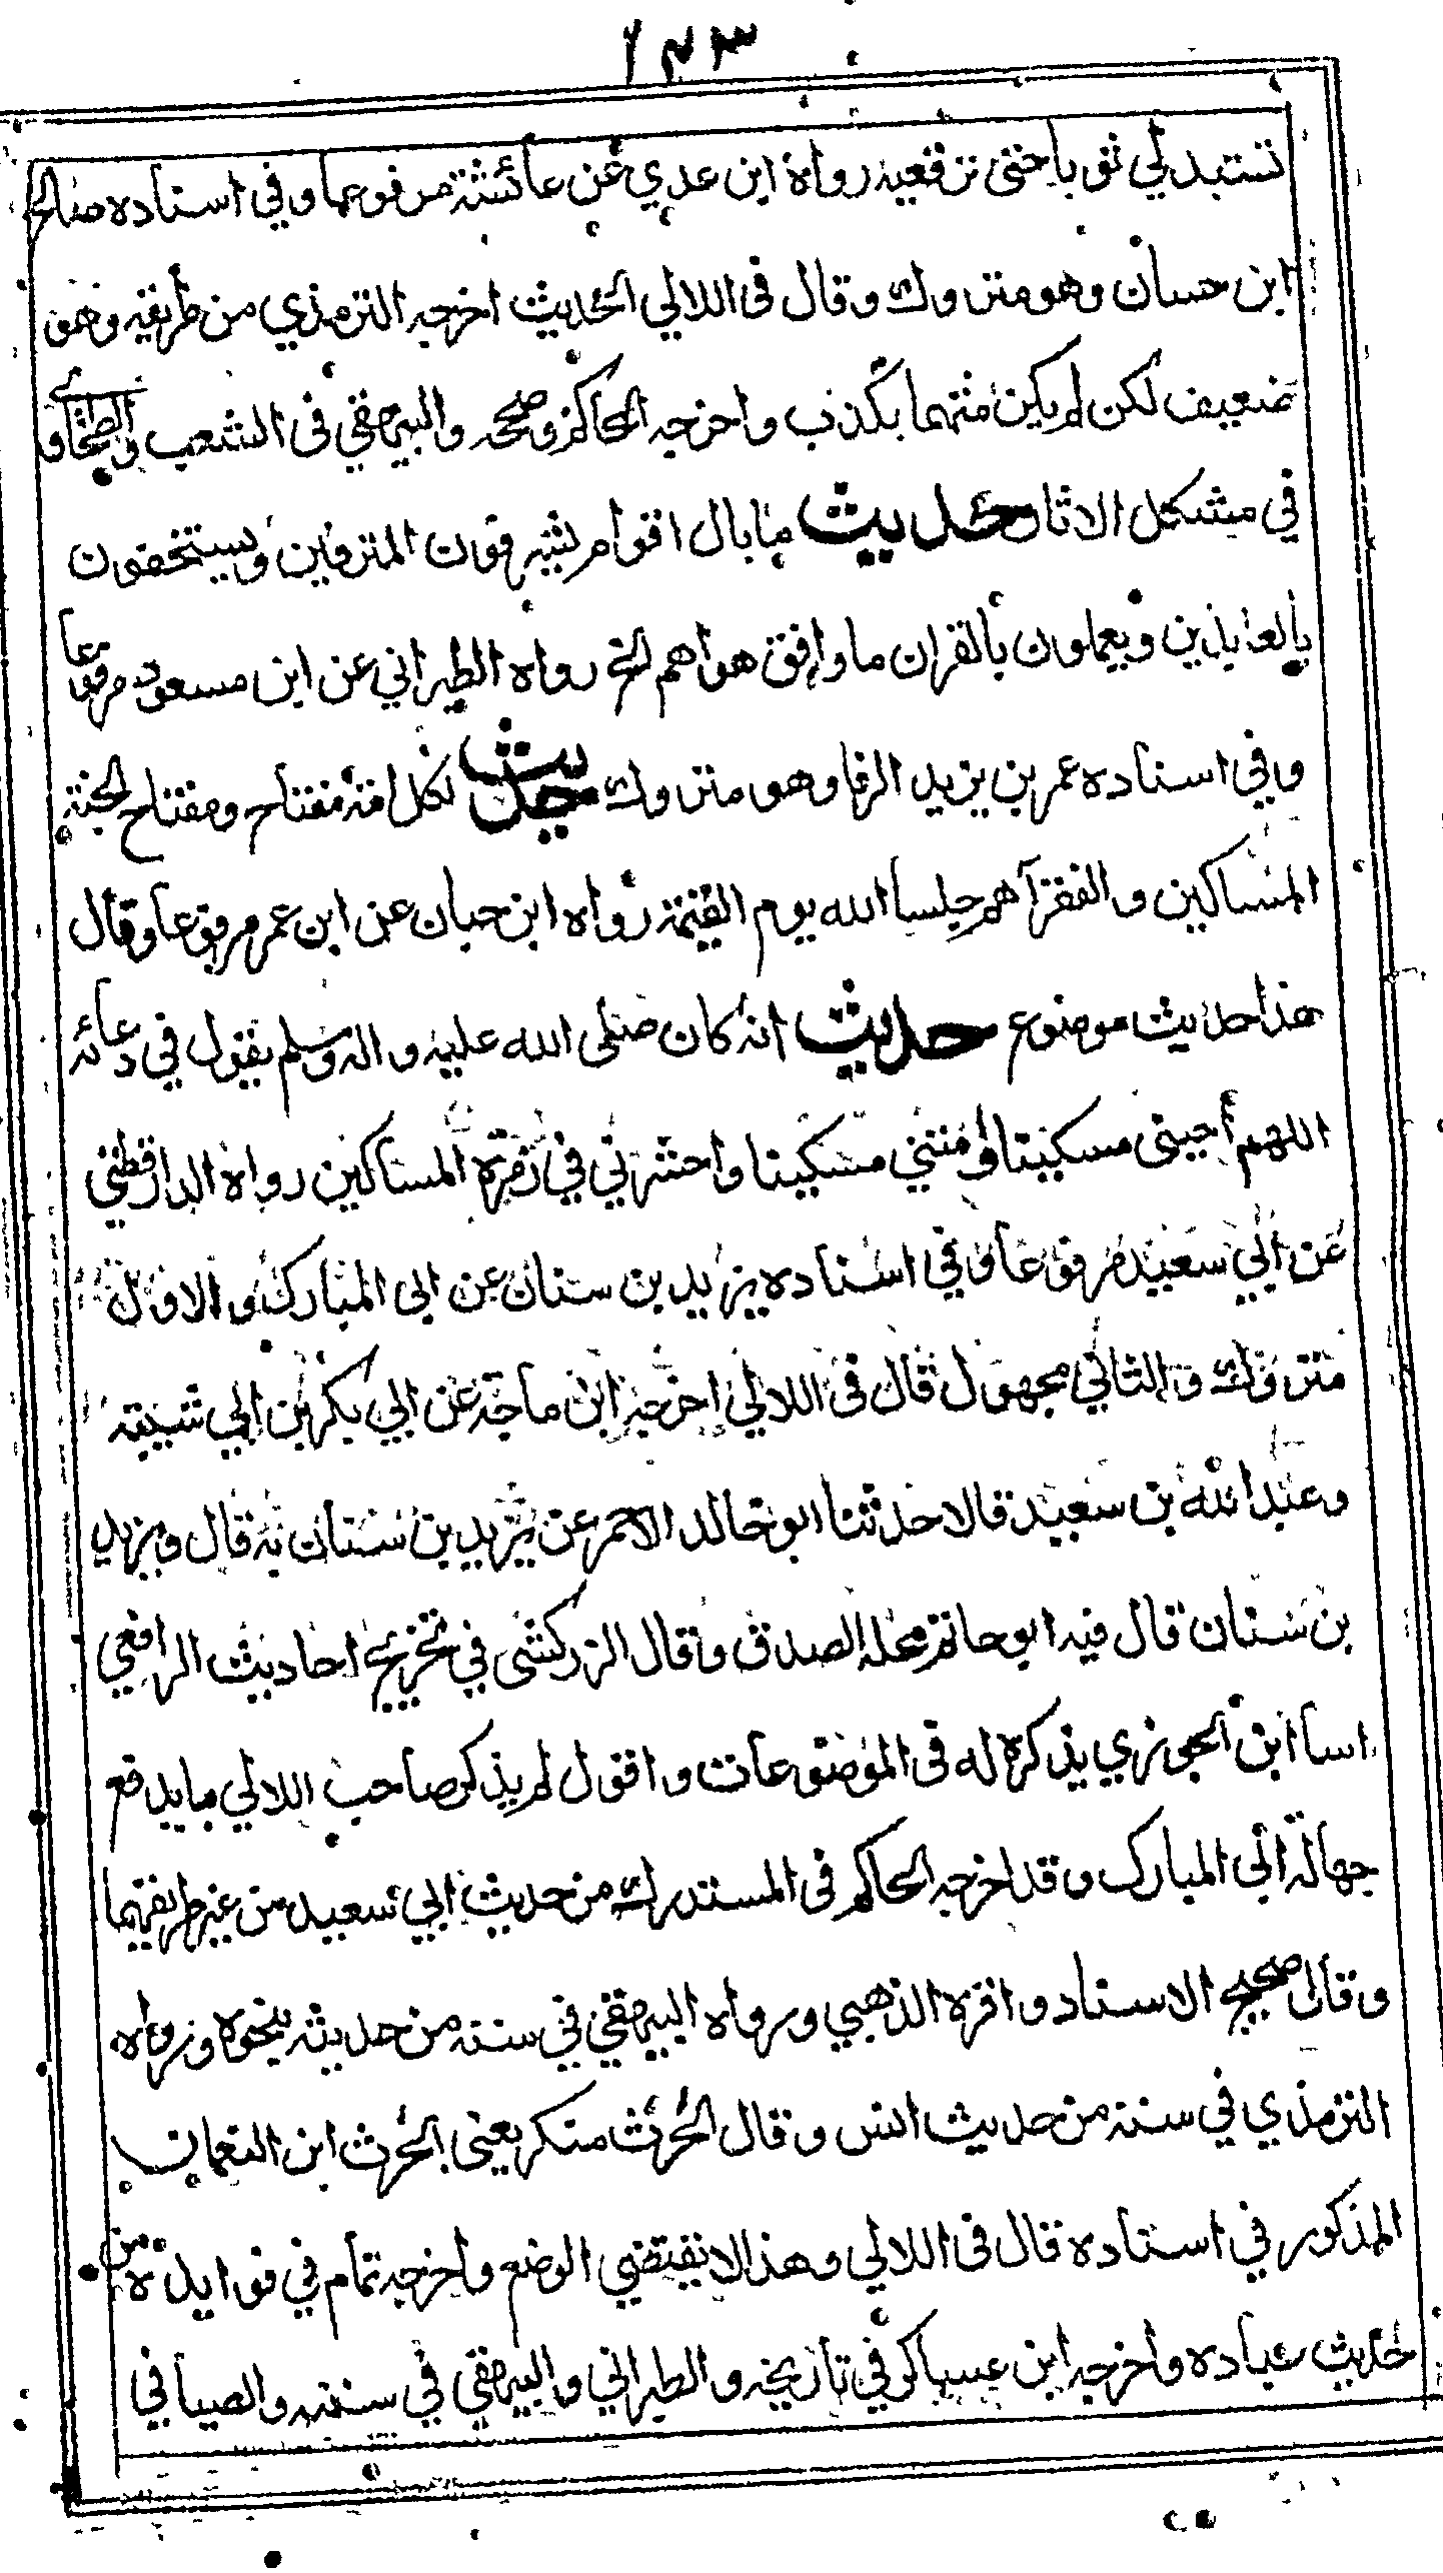 ١٤٣
تستبدلي ثوبا حتى ترقعيه رواه ابن عدي عن عائشة مرفوعا وفي اسناده صالح
ابن حسان وهو متروك وقال في اللالي الحديث اخرجه الترمذي من طريقه وهو
ضعيف لكن لم يكن متهما بكذب واخرجه الحاكم وصححه والبيهقي في الشعب والطحاوي
في مشكل الاثار حديث ما بال اقوام يشرفون المترفين ويستخفون
بالعابدين ويعملون بالقران ما وافق هواهم الخ رواه الطبراني عن ابن مسعود مرفوعا
وفي اسناده عمر بن يزيد الرفا وهو متروك حديث لكل امة مفتاح ومفتاح الجنة
المساكين والفقرآ هم جلسا الله يوم القيمة رواه ابن حبان عن ابن عمر مرفوعا وقال
هذا حديث موضوع حديث انه كان صلى الله عليه واله وسلم يقول في دعائه
اللهم أحيني مسكينا وامتني مسكينا واحشرني في زمرة المساكين رواه الدارقطني
عن ابي سعيد مرفوعا وفي اسناده يزيد بن سنان عن ابي المبارك والاول
متروك والثاني مجهول قال في اللالي اخرجه ابن ماجة عن ابي بكر بن ابي شيبة
وعبد الله بن سعيد قالا حدثنا ابو خالد الاحمر عن يزيد بن سنان به قال ويزيد
بن سنان قال فيه ابو حاتم محله الصدق وقال الزركشي في تخريج احاديث الرافعي
اسا ابن الجوزي بذكره له في الموضوعات واقول لم يذكر صاحب اللالي ما يدفع
جهالة ابي المبارك وقد اخرجه الحاكم في المستدرك من حديث ابي سعيد من غير طريقهما
وقال صحيح الاسناد واقره الذهبي ورواه البيهقي في سننه من حديثه بنحوه ورواه
الترمذي في سننه من حديث انس وقال الحرث منكر يعني الحرث ابن النعمان
المذكور في اسناده قال في اللالي وهذا لا يقتضي الوضع واخرجه تمام في فوايده من
حديث عباده واخرجه ابن عساكر في تاريخه والطبراني والبيهقي في سننه والضيا في